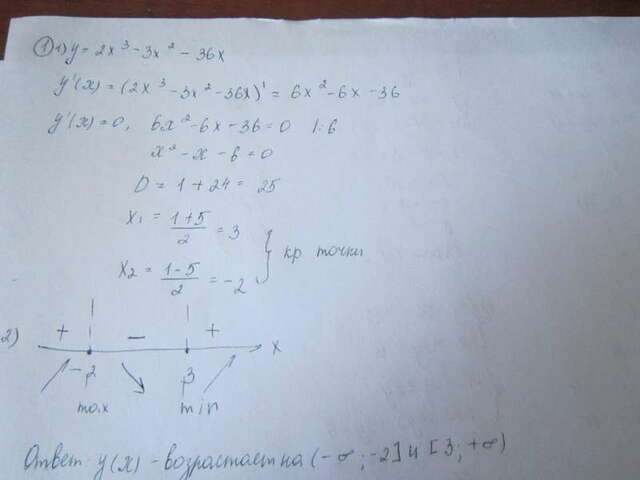 ① 1) y = 2x³ - 3x² - 36x
y'(x) = (2x³ - 3x² - 36x)' = 6x² - 6x - 36
y'(x) = 0, 6x² - 6x - 36 = 0 | : 6
x² - x - 6 = 0
D = 1 + 24 = 25
x₁ = (1+5)/2 = 3
x₂ = (1-5)/2 = -2 } кр. точки
2) + - + x
-2 3
max min
Ответ: y(x) - возрастает на (-∞; -2] и [3; +∞)